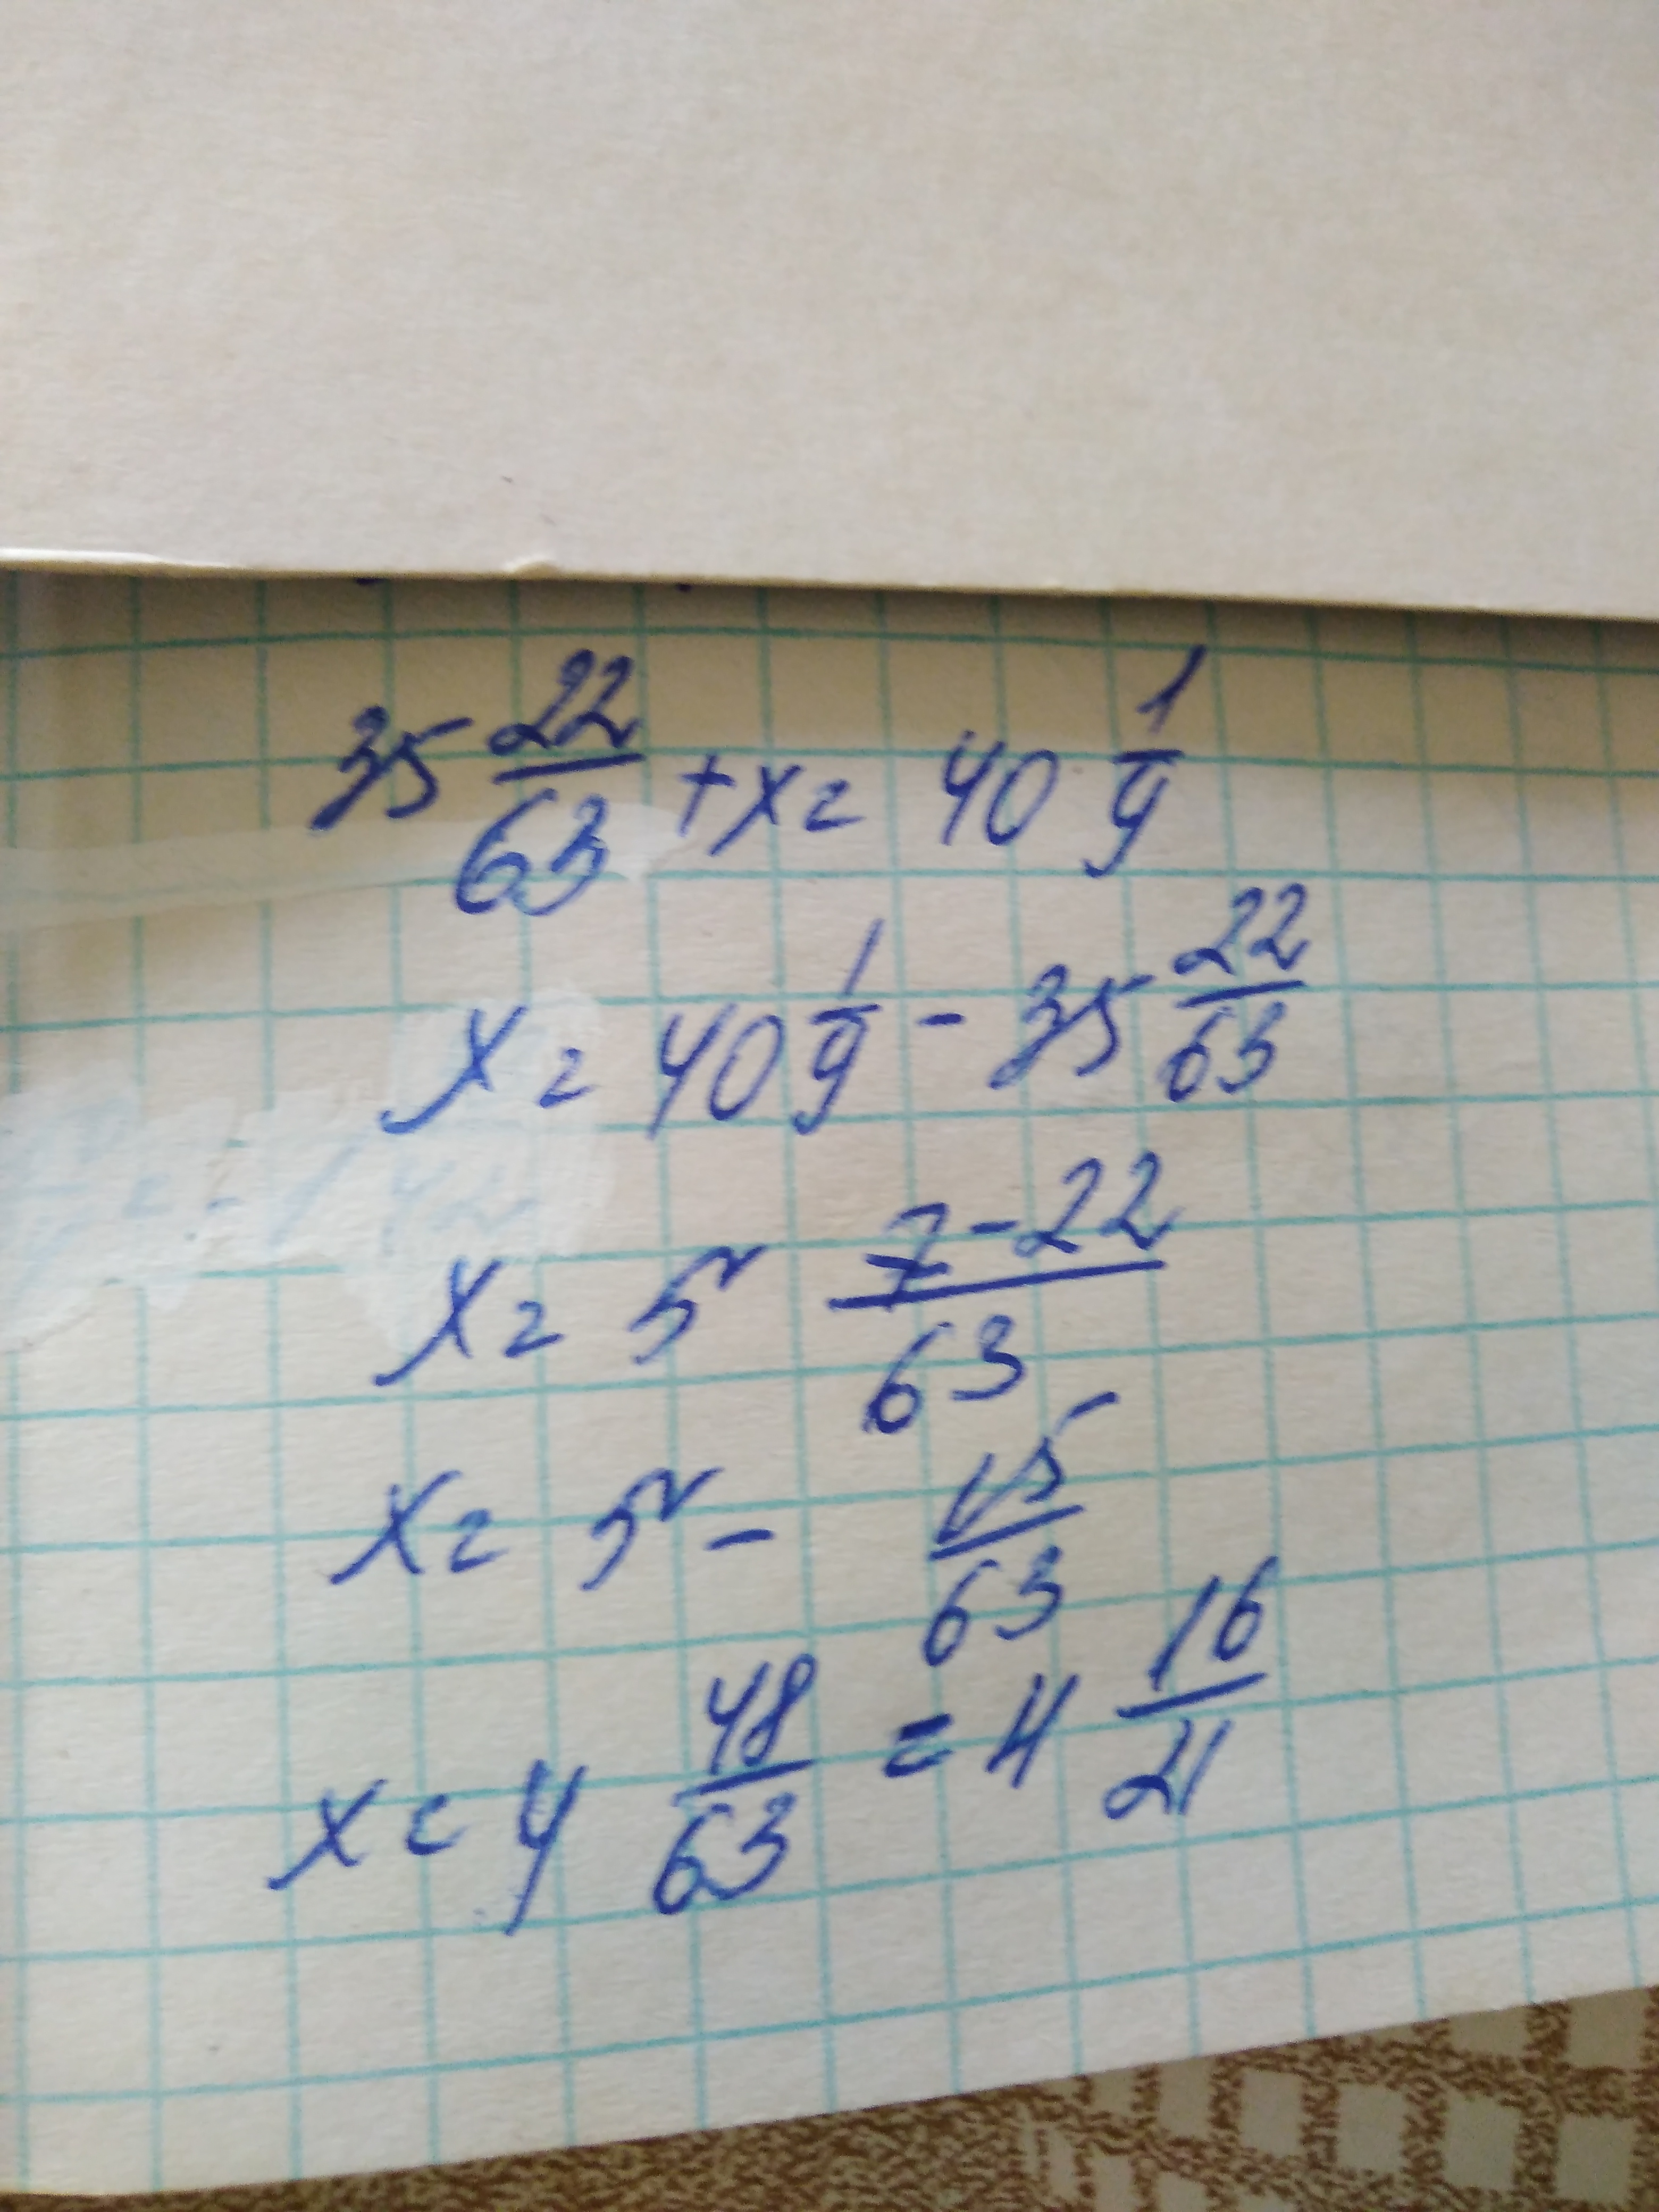 35 22/63 + x = 40 1/9
x = 40 1/9 - 35 22/63
x = 5 (7-22)/63
x = 5 - 15/63
x = 4 48/63 = 4 16/21